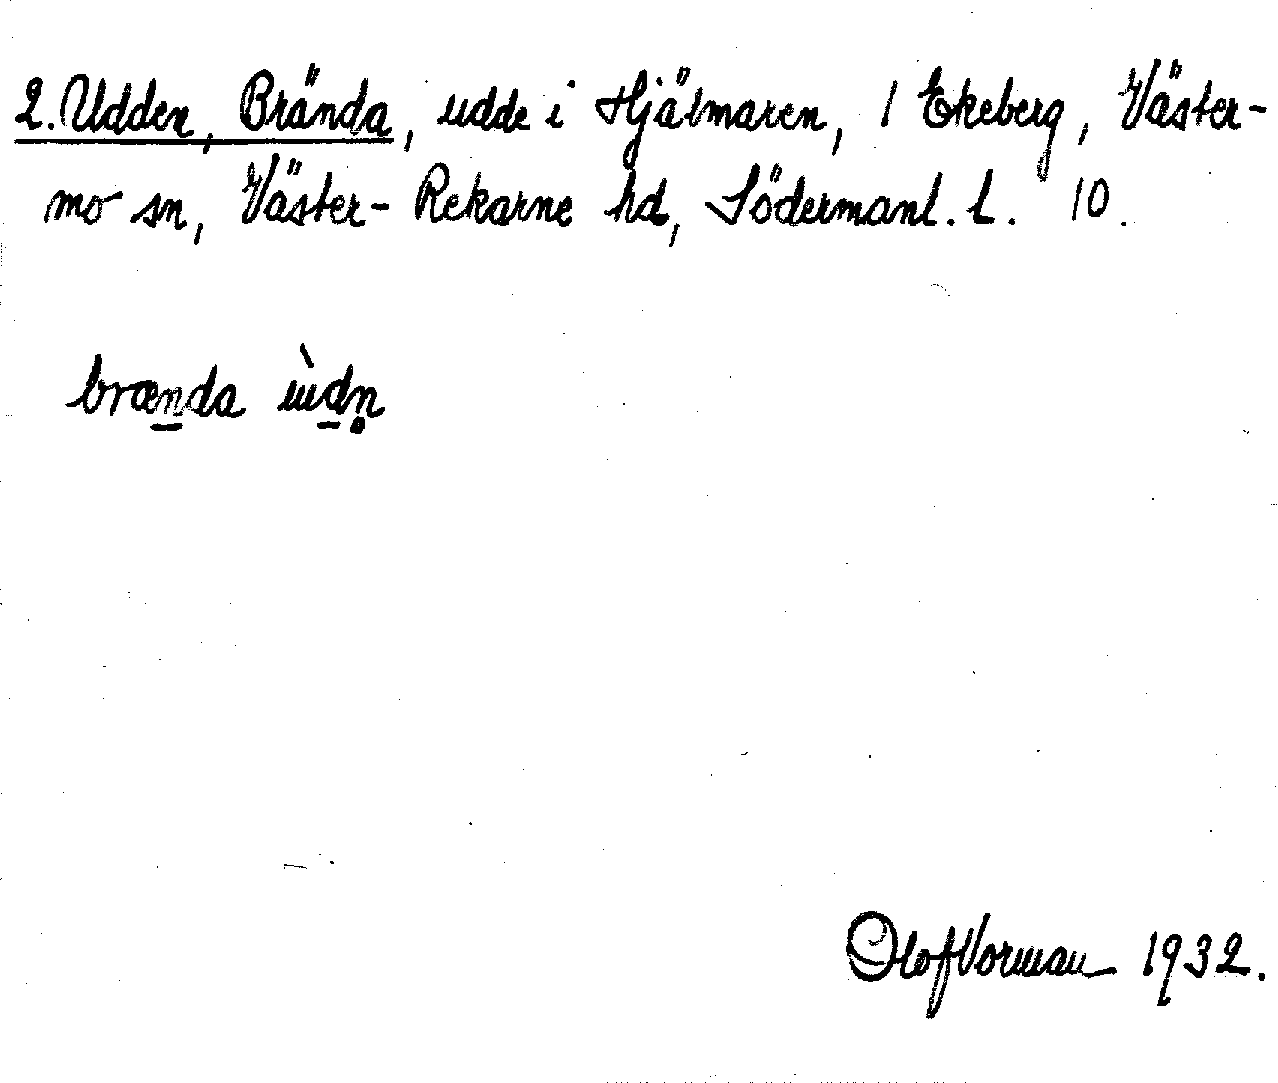 2. Udden, Brända, udde i Hjälmaren, 1 Ekeberg, Väster-
mo sn, Väster-Rekarne hd, Södermanl. l. 10.
bræn̲da ùd̲ṇ
Olof Vorman 1932.